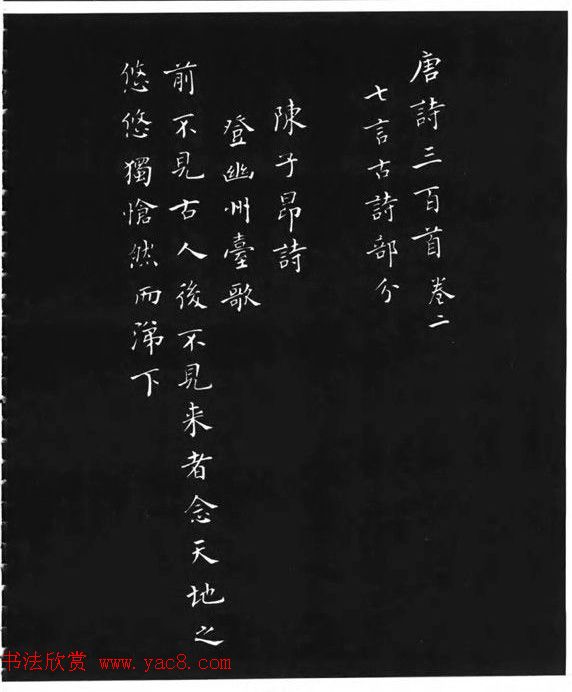 唐詩三百首 卷二
七言古詩部分
陳子昂詩
登幽州臺歌
前不見古人後不見来者念天地之
悠悠獨愴然而涕下
书法欣赏 www.yac8.com